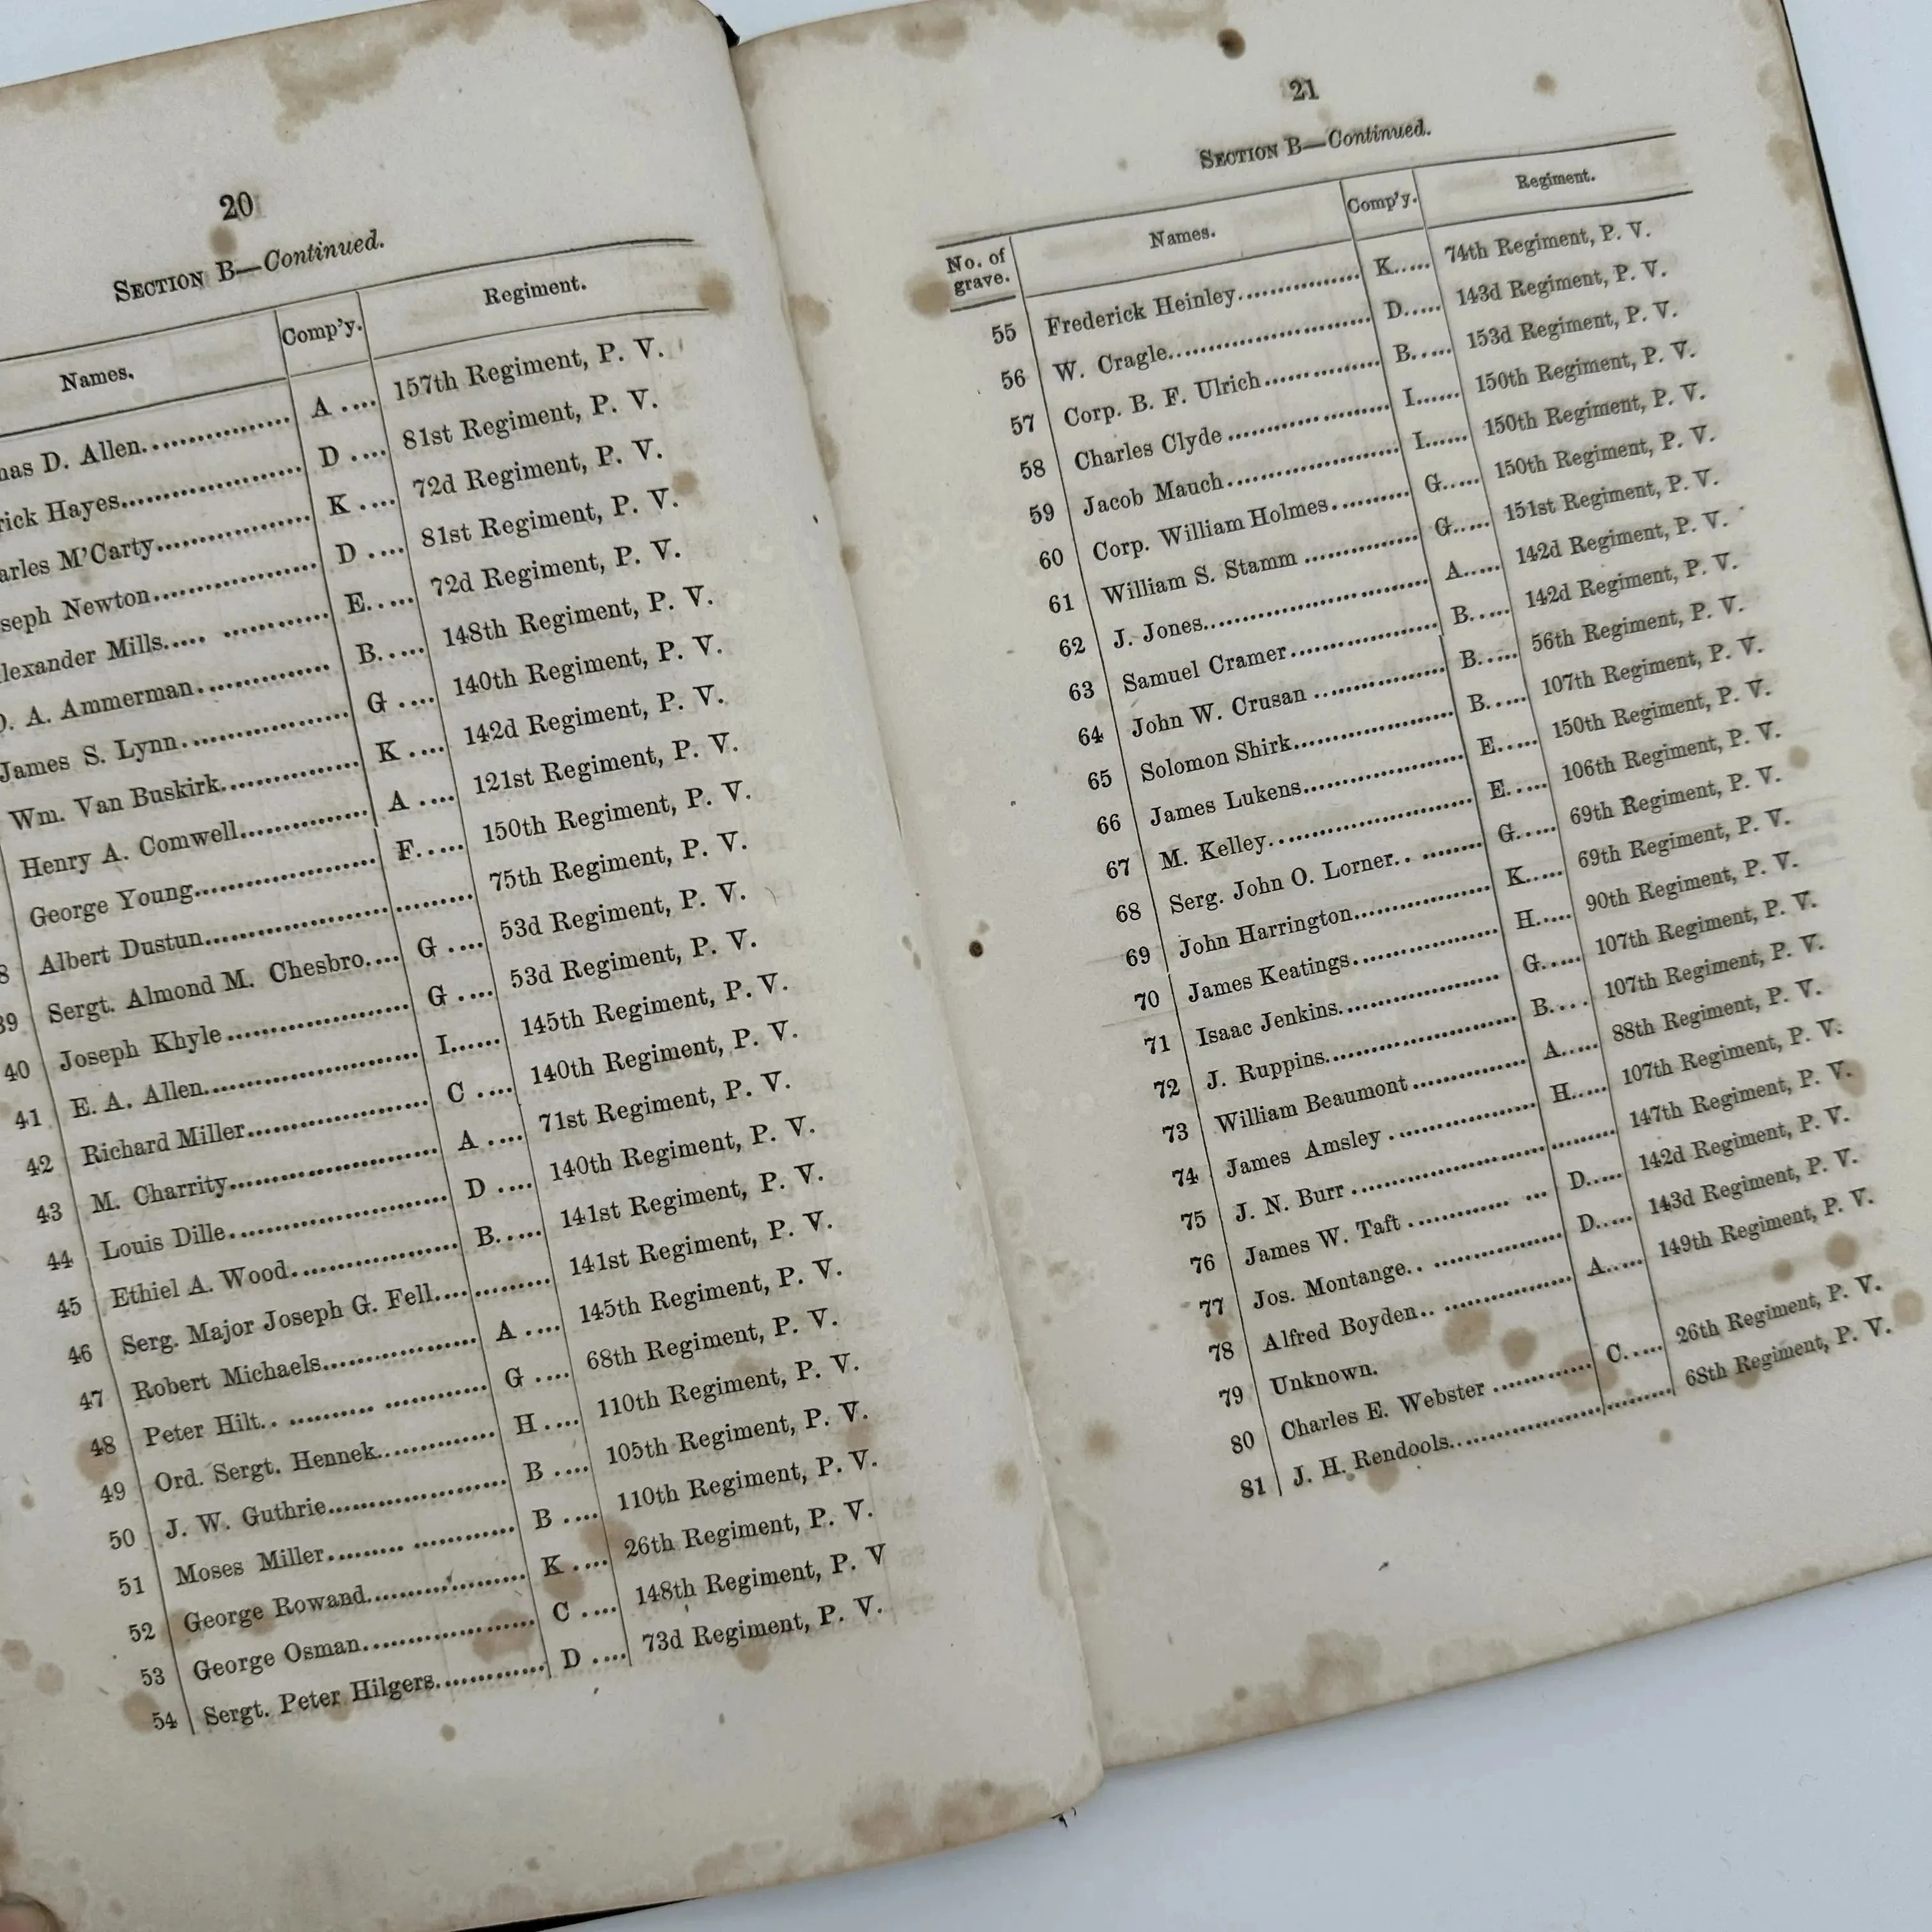 20
SECTION B—Continued.
Names. Comp'y. Regiment.
mas D. Allen A 157th Regiment, P. V.
rick Hayes D 81st Regiment, P. V.
arles M'Carty K 72d Regiment, P. V.
seph Newton D 81st Regiment, P. V.
lexander Mills E 72d Regiment, P. V.
. A. Ammerman B 148th Regiment, P. V.
James S. Lynn G 140th Regiment, P. V.
Wm. Van Buskirk K 142d Regiment, P. V.
Henry A. Comwell A 121st Regiment, P. V.
George Young F 150th Regiment, P. V.
8 Albert Dustun 75th Regiment, P. V.
39 Sergt. Almond M. Chesbro G 53d Regiment, P. V.
40 Joseph Khyle G 53d Regiment, P. V.
41 E. A. Allen I 145th Regiment, P. V.
42 Richard Miller C 140th Regiment, P. V.
43 M. Charrity A 71st Regiment, P. V.
44 Louis Dille D 140th Regiment, P. V.
45 Ethiel A. Wood B 141st Regiment, P. V.
46 Serg. Major Joseph G. Fell 141st Regiment, P. V.
47 Robert Michaels A 145th Regiment, P. V.
48 Peter Hilt G 68th Regiment, P. V.
49 Ord. Sergt. Hennek H 110th Regiment, P. V.
50 J. W. Guthrie B 105th Regiment, P. V.
51 Moses Miller B 110th Regiment, P. V.
52 George Rowand K 26th Regiment, P. V.
53 George Osman C 148th Regiment, P. V
54 Sergt. Peter Hilgers D 73d Regiment, P. V.
21
SECTION B—Continued.
No. of grave. Names. Comp'y. Regiment.
55 Frederick Heinley K 74th Regiment, P. V.
56 W. Cragle D 143d Regiment, P. V.
57 Corp. B. F. Ulrich B 153d Regiment, P. V.
58 Charles Clyde I 150th Regiment, P. V.
59 Jacob Mauch I 150th Regiment, P. V.
60 Corp. William Holmes G 150th Regiment, P. V.
61 William S. Stamm G 151st Regiment, P. V.
62 J. Jones A 142d Regiment, P. V.
63 Samuel Cramer B 142d Regiment, P. V.
64 John W. Crusan B 56th Regiment, P. V.
65 Solomon Shirk B 107th Regiment, P. V.
66 James Lukens E 150th Regiment, P. V.
67 M. Kelley E 106th Regiment, P. V.
68 Serg. John O. Lorner G 69th Regiment, P. V.
69 John Harrington K 69th Regiment, P. V.
70 James Keatings H 90th Regiment, P. V.
71 Isaac Jenkins G 107th Regiment, P. V.
72 J. Ruppins B 107th Regiment, P. V.
73 William Beaumont A 88th Regiment, P. V.
74 James Amsley H 107th Regiment, P. V.
75 J. N. Burr 147th Regiment, P. V.
76 James W. Taft D 142d Regiment, P. V.
77 Jos. Montange D 143d Regiment, P. V.
78 Alfred Boyden A 149th Regiment, P. V.
79 Unknown.
80 Charles E. Webster C 26th Regiment, P. V.
81 J. H. Rendools 68th Regiment, P. V.